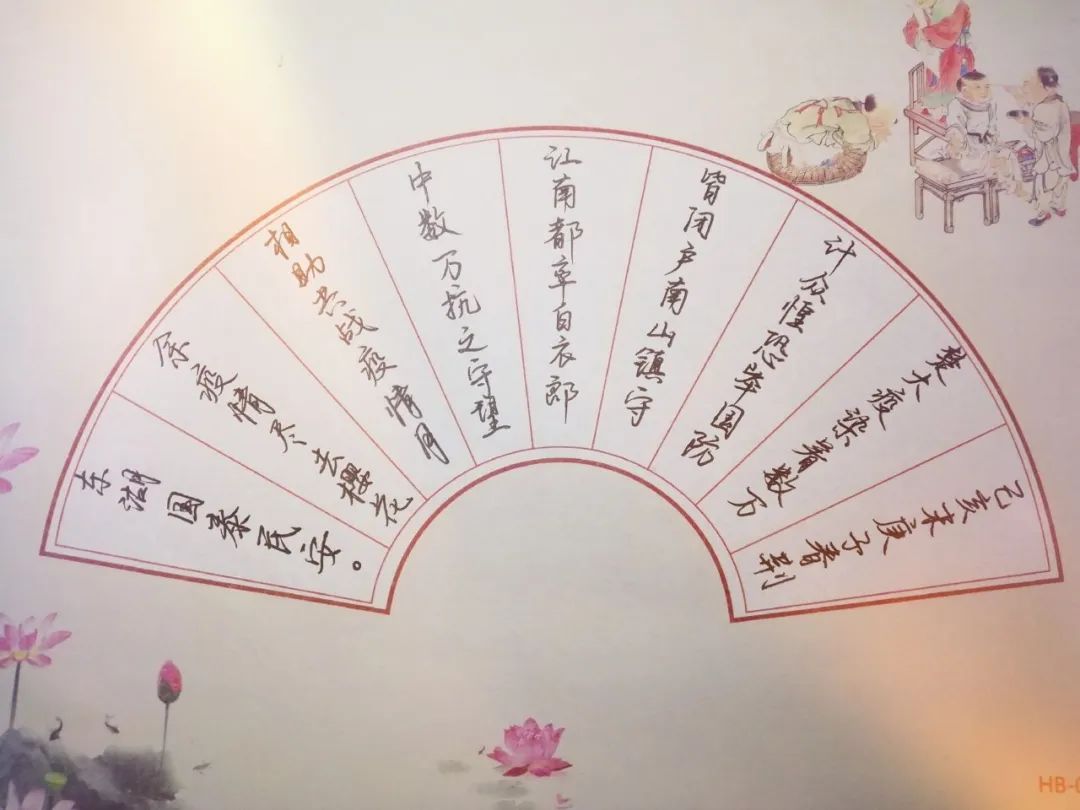 己亥末庚子春荆
楚大疫染着数万
计众惶恐举国防
皆闭户南山镇守
江南都率白衣郎
中数万抗之守望
相助共战疫情月
余疫情尽去樱花
东湖国泰民安。
HB-